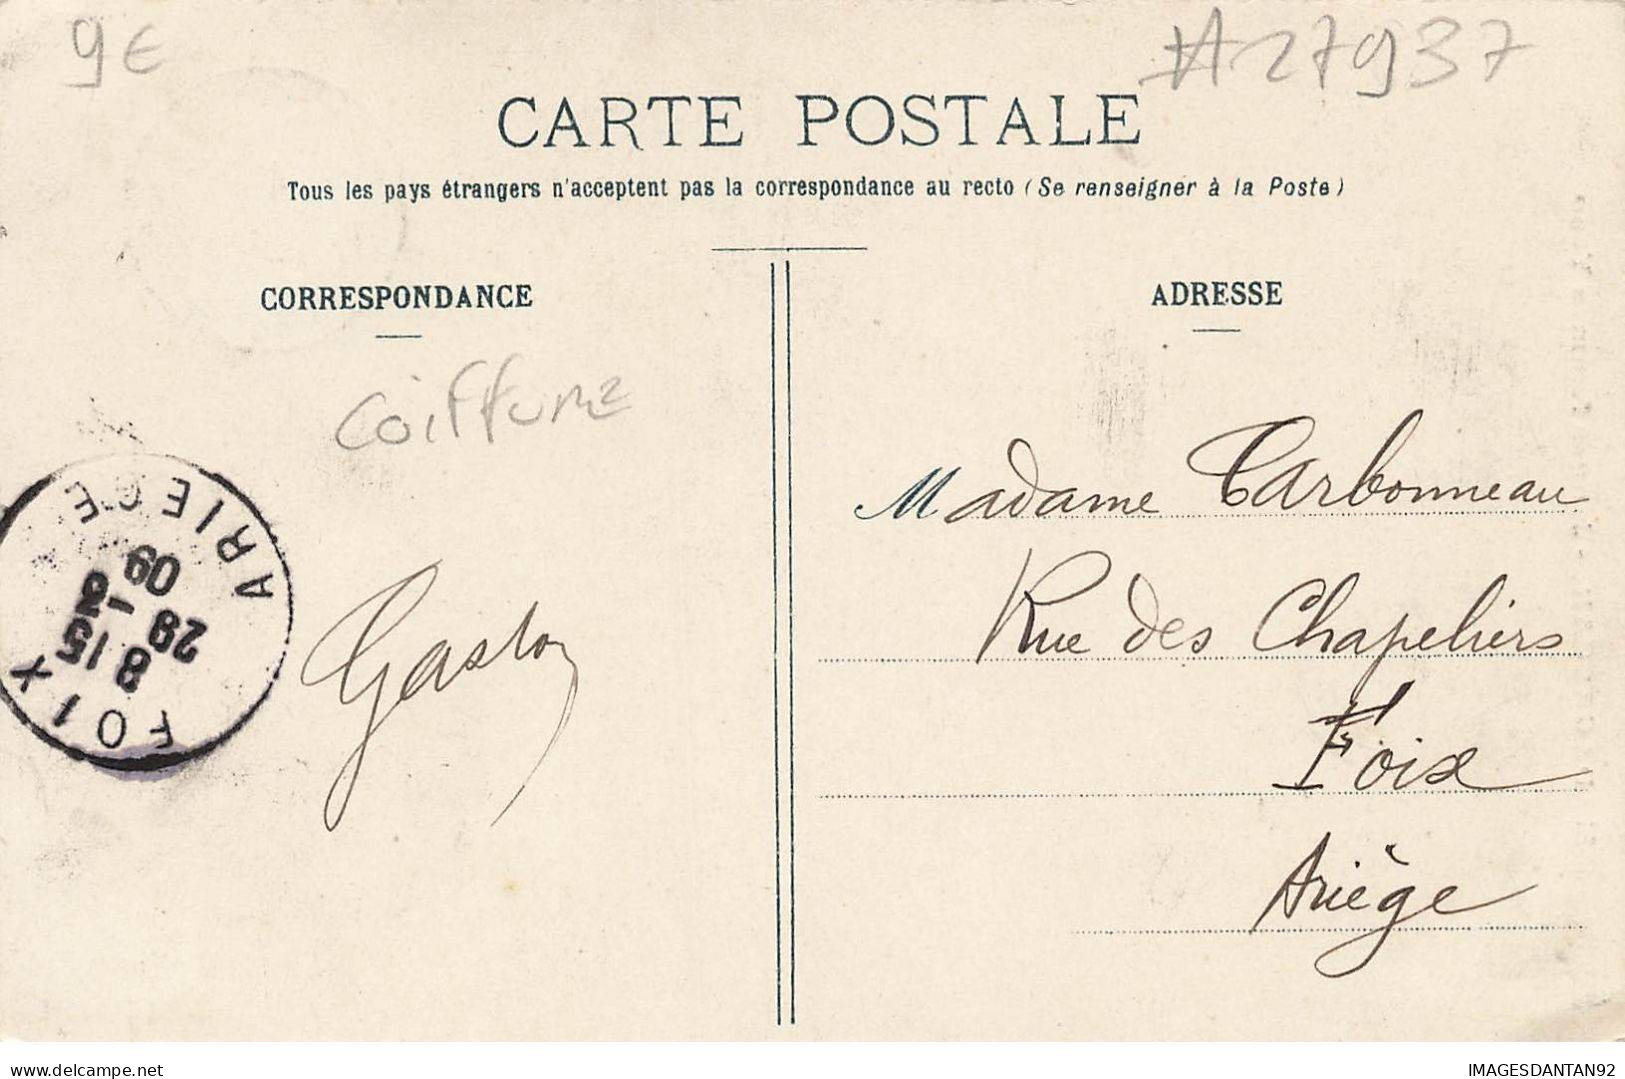 9€
#A27937
CARTE POSTALE
Tous les pays étrangers n'acceptent pas la correspondance au recto (Se renseigner à la Poste)
CORRESPONDANCE
coiffure
Gaston
FOIX
8 15
29 -8
09
ARIEGE
ADRESSE
Madame Carbonneau
Rue des Chapeliers
Foix
Ariège
www.delcampe.net
IMAGESDANTAN92